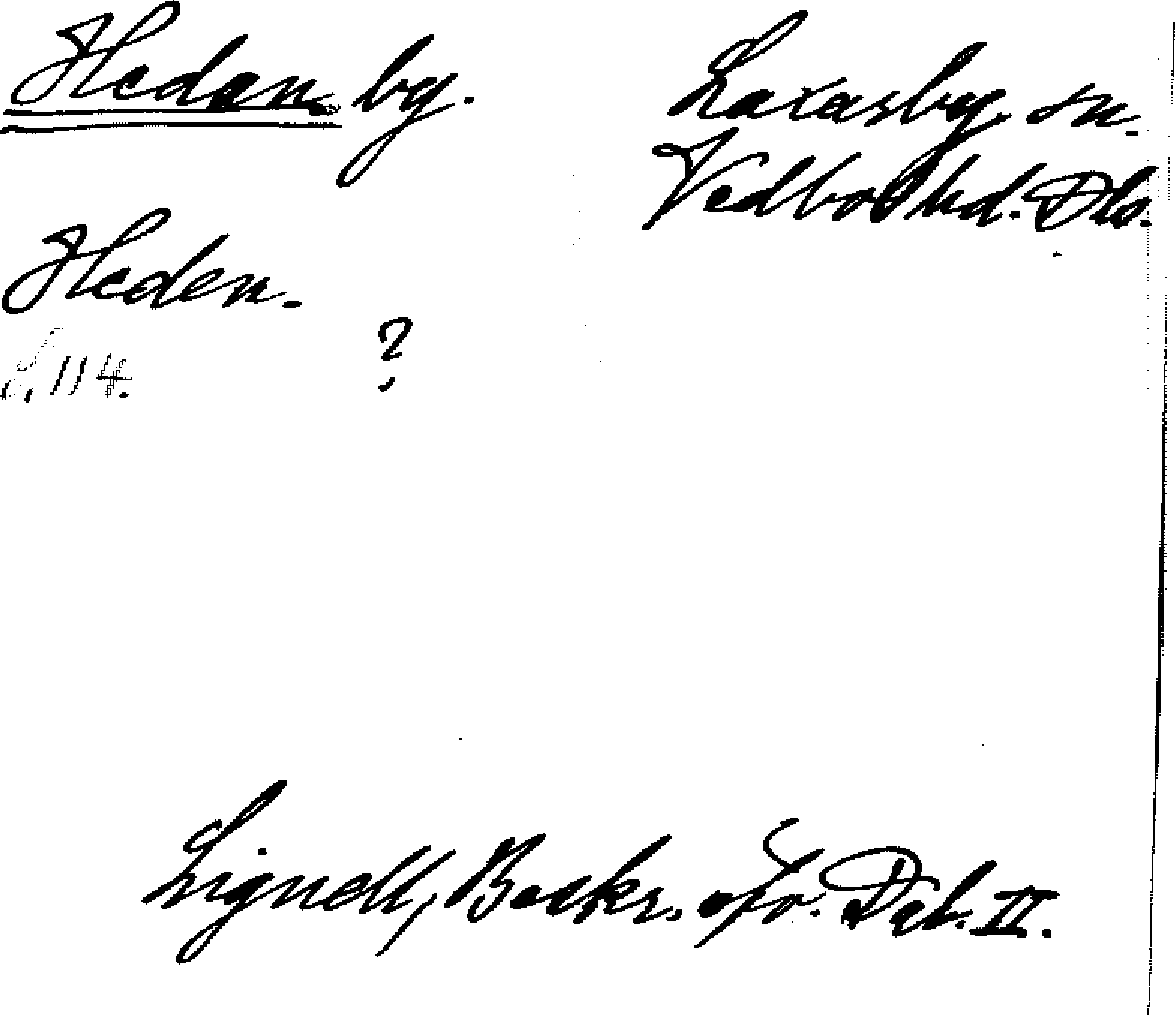 Hedan by.
Laxarby sn.
Vedbo hd. Dls.
Heden.
S. 114.
?
Lignell, Beskr. öfv. Dal. II.